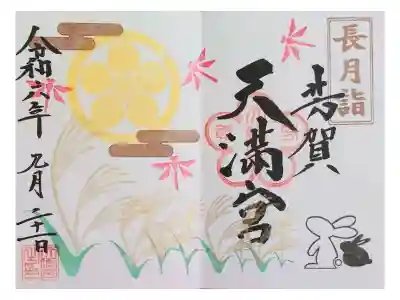 長月詣
賀
天満宮
令和六年 九月 二十一日